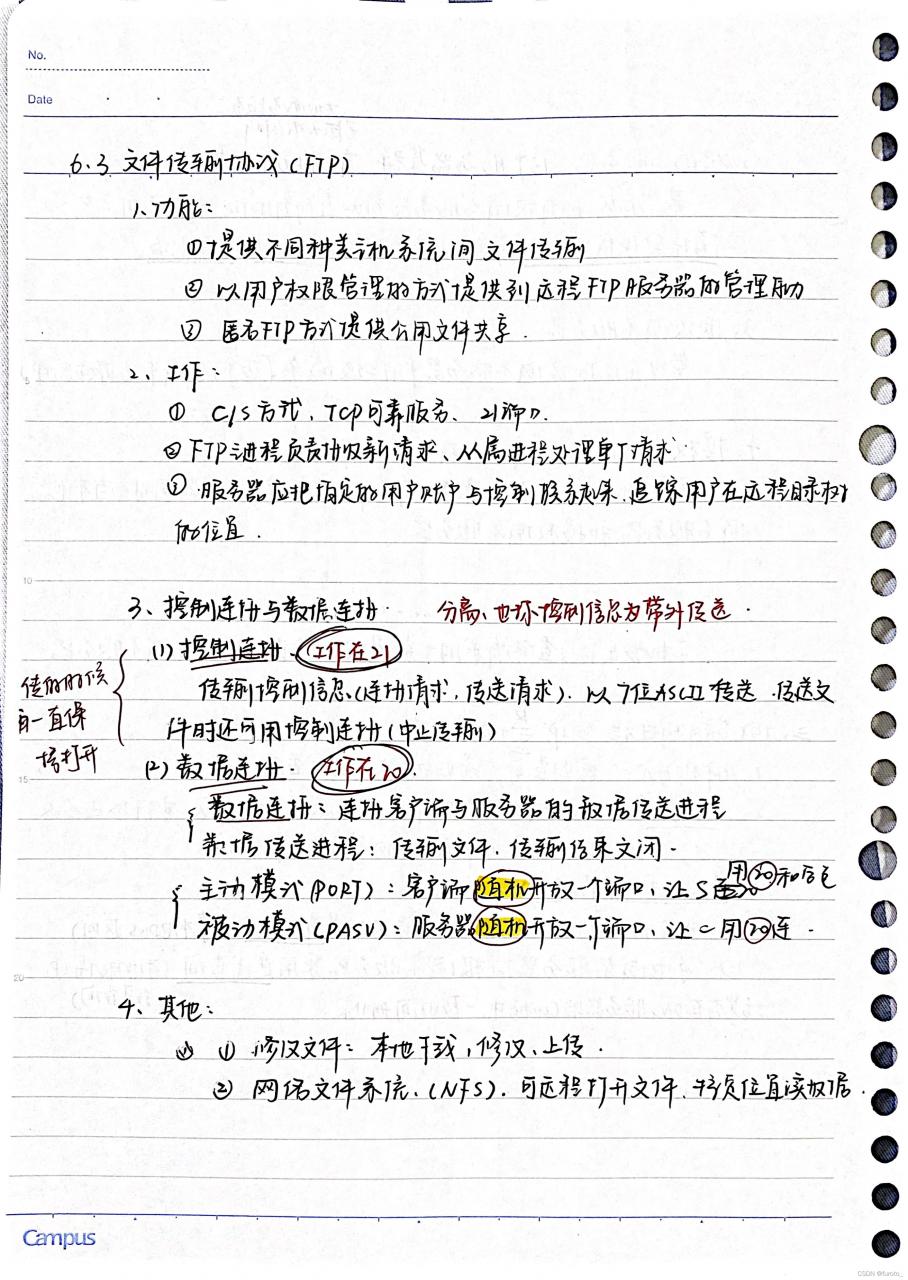 No.
Date
6.3 文件传输协议(FTP)
1、功能：
① 提供不同种类主机系统间文件传输
② 以用户权限管理的方式提供到远程FTP服务器的管理
③ 匿名FTP方式提供公用文件共享.
2、工作：
① C/S方式, TCP可靠服务、21端口.
② FTP进程负责接收新请求、从属进程处理单个请求.
③ 服务器应把指定的用户账户与控制 追踪用户在远程目录树
的位置.
10
3、控制连接与数据连接. 分离、也称控制信息为带外传送.
(1) 控制连接. 工作在21
传输的时候
一直保
持打开
传输控制信息(连接请求, 传送请求). 以7位ASCII传送. 传送文
件时还可用控制连接(中止传输)
15
(2) 数据连接. 工作在20.
数据连接：连接客户端与服务器的数据传送进程
数据传送进程：传输文件. 传输结束关闭.
主动模式(PORT)：客户端随机开放一个端口, 让S 用20和
被动模式(PASV)：服务器随机开放一个端口, 让C用20连.
20
4、其他：
① 修改文件：本地下载, 修改、上传.
② 网络文件系统.(NFS). 可远程打开文件、特定位置读数据.
Campus
CSDN @furoto_